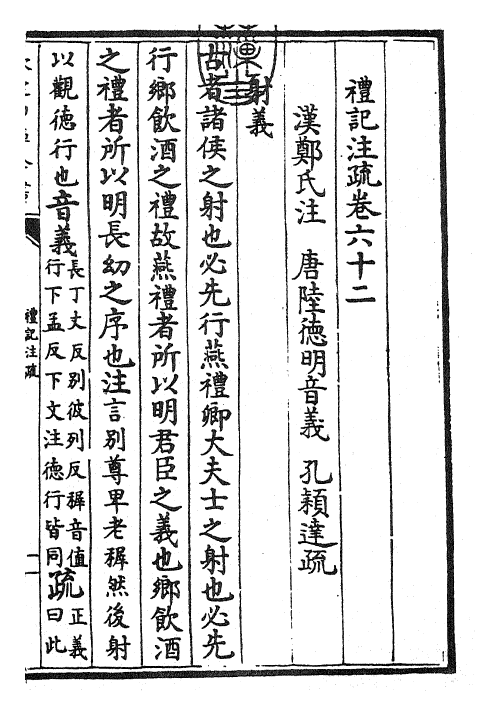 禮記注疏卷六十二
漢鄭氏注 唐陸德明音義 孔穎達疏
射義
古者諸侯之射也必先行燕禮卿大夫士之射也必先
行鄉飲酒之禮故燕禮者所以明君臣之義也鄉飲酒
之禮者所以明長幼之序也注言別尊卑老穉然後射
以觀德行也音義長丁丈反別彼列反穉音值
行下孟反下文注德行皆同疏正義
曰此
禮記注疏
一